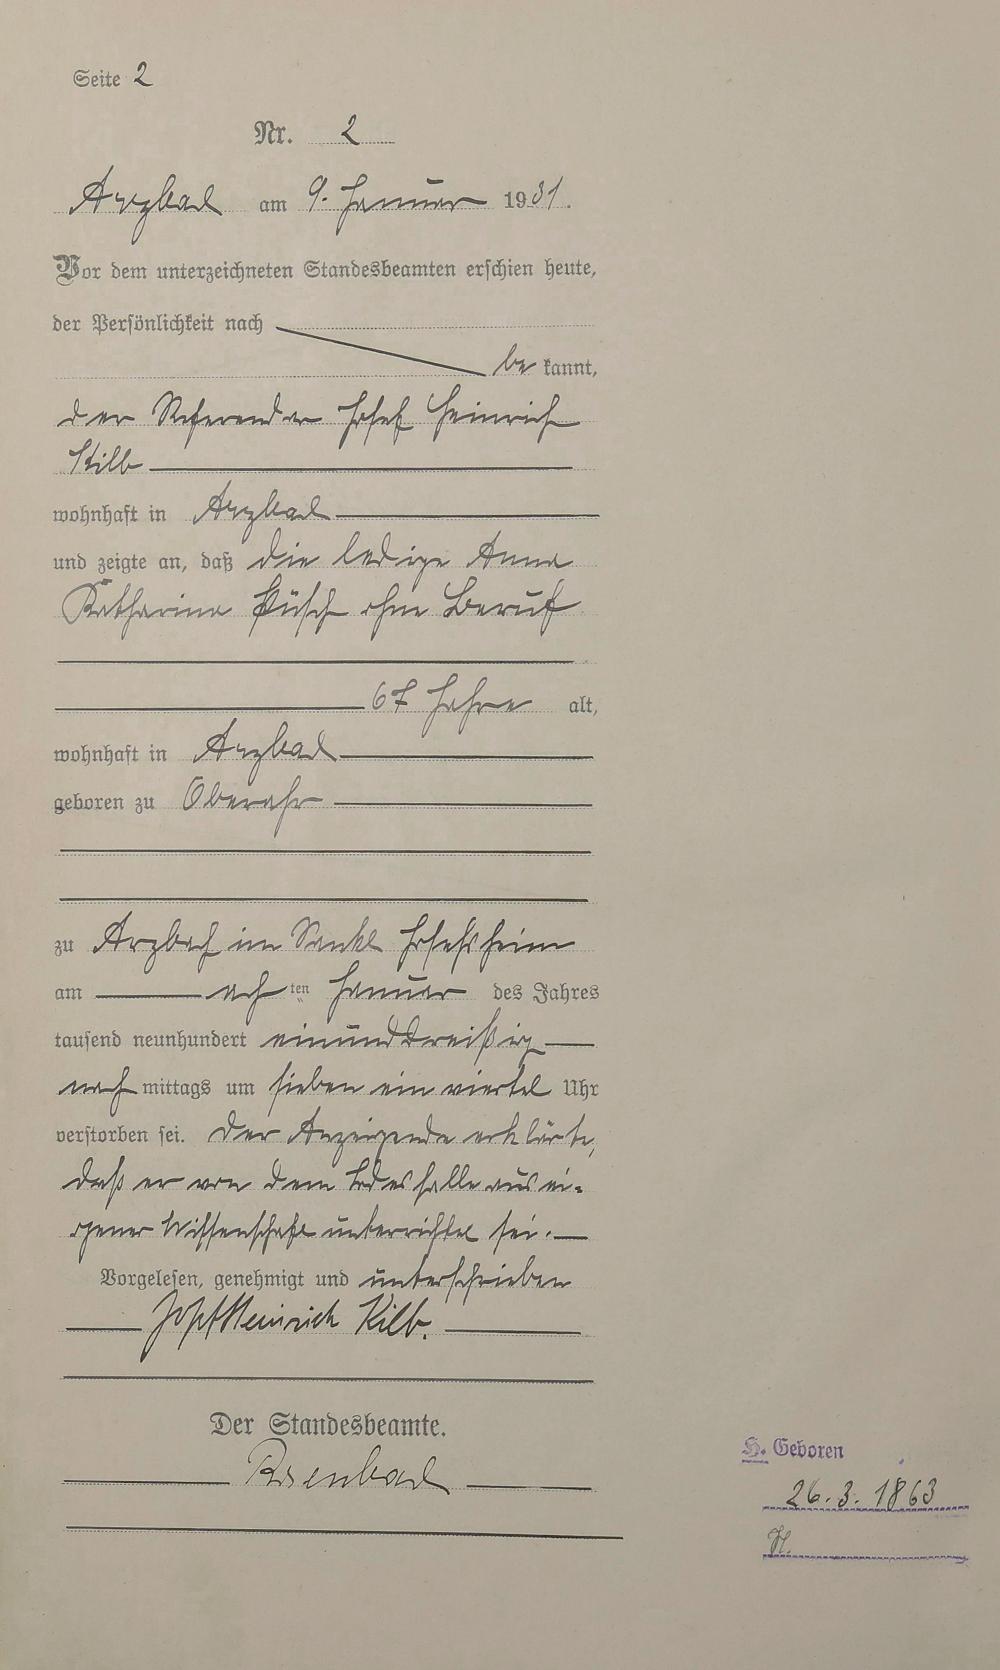 Seite 2
Nr. 2
Arzbach am 9. Januar 1931.
Vor dem unterzeichneten Standesbeamten erschien heute,
der Persönlichkeit nach
be kannt,
der Referendar Josef Heinrich
Kilb
wohnhaft in Arzbach
und zeigte an, daß die ledige Anna
Katharina Püsch ohne Beruf
67 Jahre alt,
wohnhaft in Arzbach
geboren zu Oberahr
zu Arzbach im Sankt Josefsheim
am ach ten Januar des Jahres
tausend neunhundert einunddreißig
nach mittags um sieben ein viertel Uhr
verstorben sei. Der Anzeigende erklärte,
daß er von dem Todesfalle aus ei-
gener Wissenschaft unterrichtet sei.
Vorgelesen, genehmigt und unterschrieben
Josef Heinrich Kilb.
Der Standesbeamte.
H. Geboren
26.3.1863